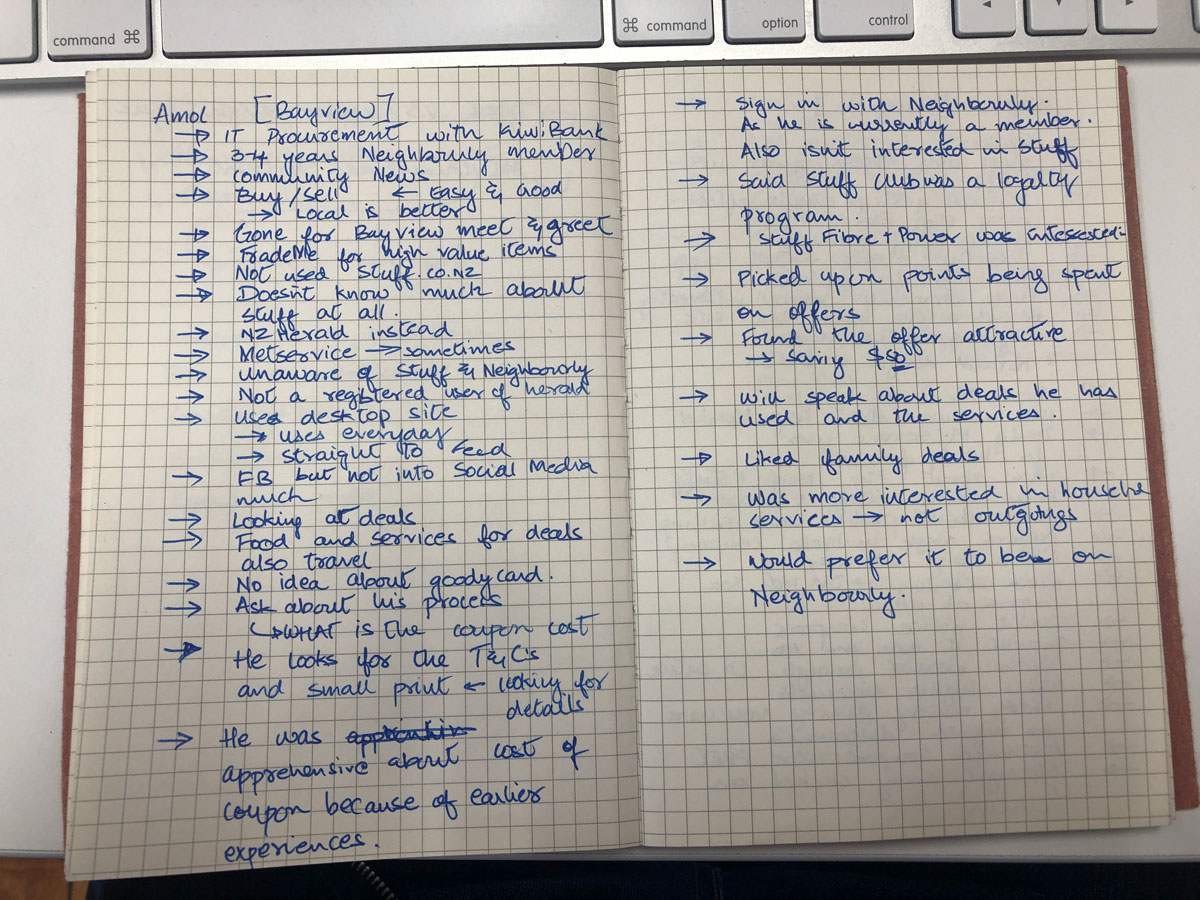 command ⌘
⌘ command
option
control
Amol [Bayview]
→ IT Procurement with KiwiBank
→ 3-4 years Neighbourly member
→ Community News
→ Buy/sell ← Easy & Good
→ Local is better
→ Gone for Bayview meet & greet
→ TradeMe for high value items
→ Not used stuff.co.nz
→ Doesn't know much about
stuff at all.
→ NZ Herald instead
→ Metservice → sometimes
→ Unaware of Stuff & Neighbourly
→ Not a registered user of herald
→ Uses desktop site
→ uses everyday
→ straight to feed
→ FB but not into Social Media
much
→ Looking at deals
→ Food and services for deals
also travel
→ No idea about goodycard.
→ Ask about his process
↳ WHAT is the coupon cost
→ He looks for the T&C's
and small print ← looking for
details
→ He was
apprehensive about cost of
coupon because of earlier
experiences.
→ Sign in with Neighbourly.
As he is currently a member.
Also isn't interested in Stuff
→ Said Stuff Club was a loyalty
program.
→ Stuff Fibre + Power was
→ Picked upon points being spent
on offers
→ Found the offer attractive
→ saving $50
→ Will speak about deals he has
used and the services.
→ Liked family deals
→ Was more interested in
services → not outgoings
→ Would prefer it to be on
Neighbourly.